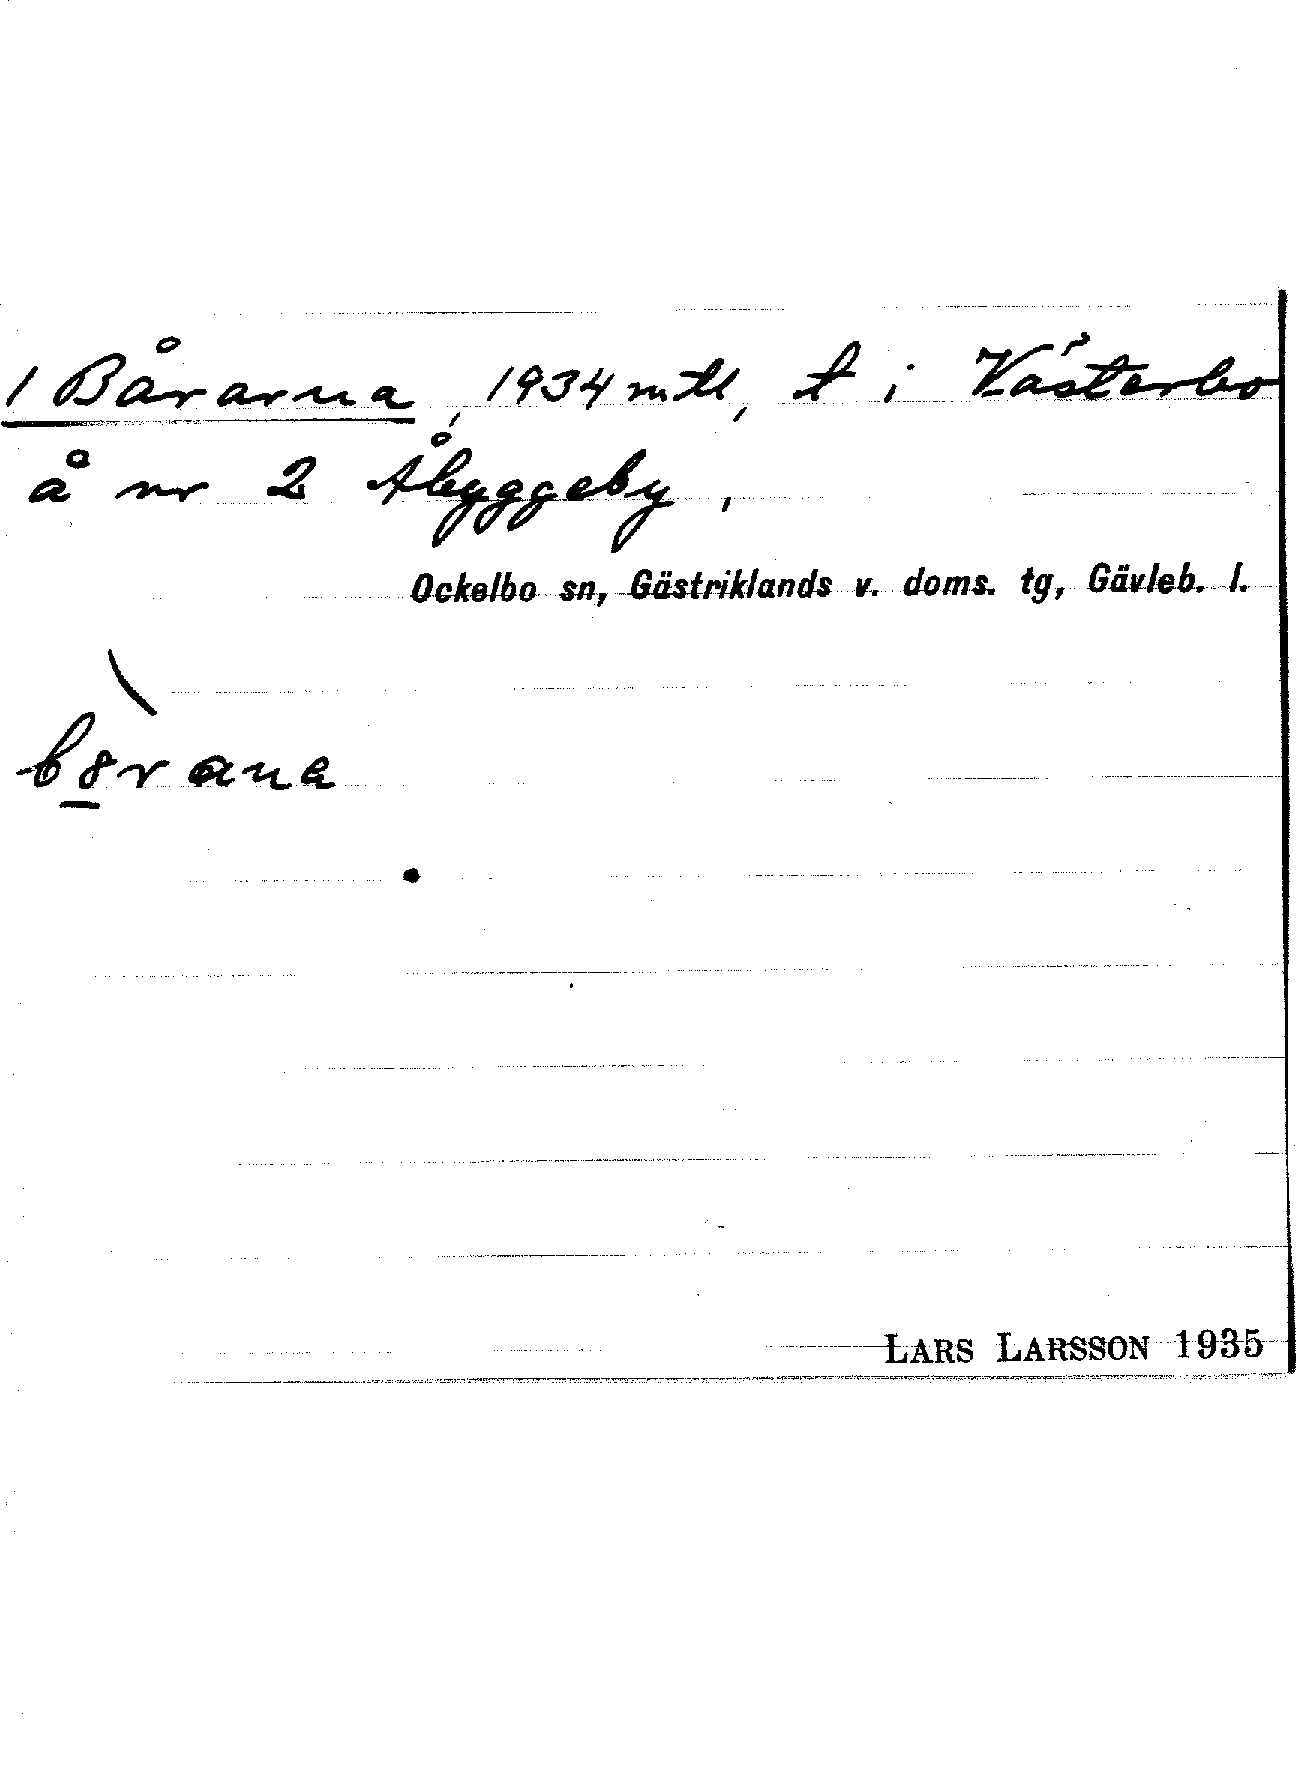 1 Bårarna, 1934 mtl, t i Västerbo
å nr 2 Åbyggeby.
Ockelbo sn, Gästriklands v. doms. tg, Gävleb. l.
LARS LARSSON 1935